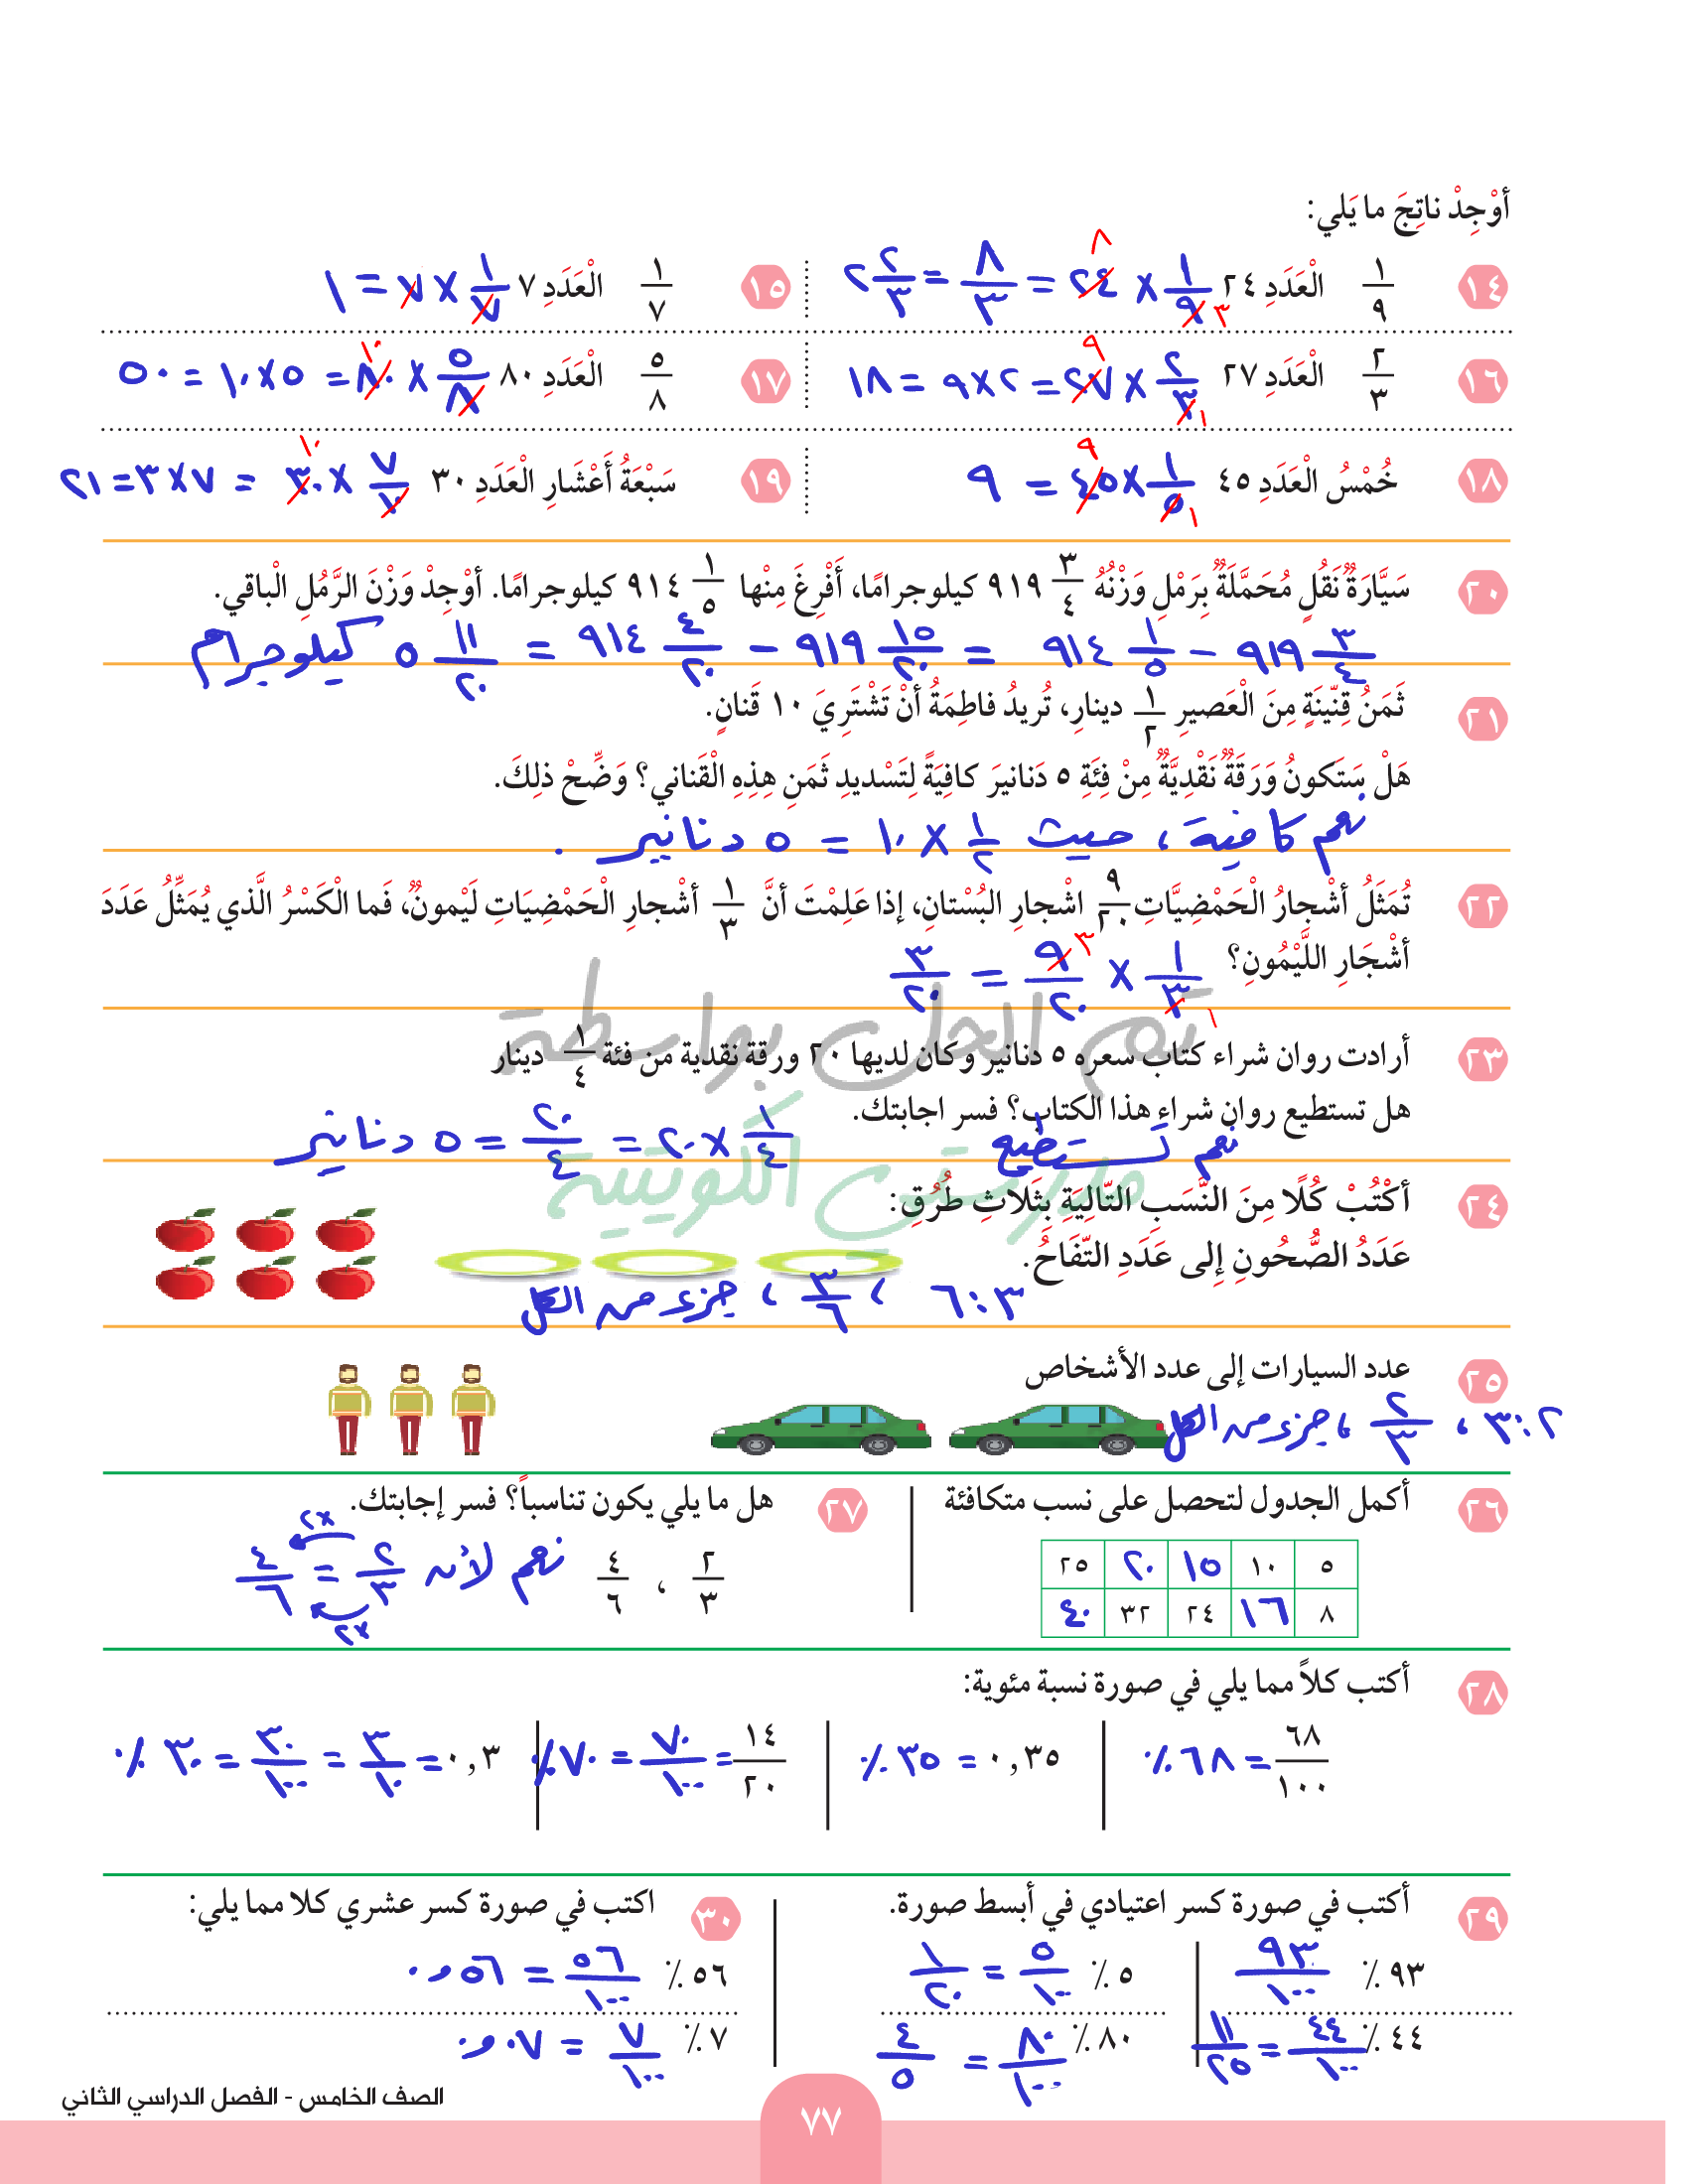 أوْجِدْ ناتِجَ ما يَلي:
١٤ ١/٩ الْعَدَدِ ٢٤ ١/٩ × ٢٤ = ٨/٣ = ٢ ٢/٣ ٨ ٣
١٥ ١/٧ الْعَدَدِ ٧ ١/٧ × ٧ = ١
١٦ ٢/٣ الْعَدَدِ ٢٧ ٢/٣ × ٢٧ = ٢ × ٩ = ١٨ ٩ ١
١٧ ٥/٨ الْعَدَدِ ٨٠ ٥/٨ × ٨٠ = ٥ × ١٠ = ٥٠ ١٠
١٨ خُمْسُ الْعَدَدِ ٤٥ ١/٥ × ٤٥ = ٩ ٩ ١
١٩ سَبْعَةُ أَعْشَارِ الْعَدَدِ ٣٠ × ٣٠ = ٧ × ٣ = ٢١ ١٠
٢٠ سَيَّارَةُ نَقْلٍ مُحَمَّلَةٌ بِرَمْلٍ وَزْنُهُ ٣/٤ ٩١٩ كيلوجرامًا، أَفْرِغَ مِنْها ١/٥ ٩١٤ كيلوجرامًا. أوْجِدْ وَزْنَ الرَّمُلِ الْباقي.
٩١٩ ٣/٤ − ٩١٤ ١/٥ = ٩١٩ ١٥/٢٠ − ٩١٤ ٤/٢٠ = ٥ ١١/٢٠ كيلوجرام
٢١ ثَمَنُ قِنّينَةٍ مِنَ الْعَصيرِ ١/٢ دينارِ، تُريدُ فاطِمَةُ أنْ تَشْتَرِيَ ١٠ قَنانٍ.
هَلْ سَتَكونُ وَرَقَةٌ نَقْدِيَّةٌ مِنْ فِئَةِ ٥ دَنانيرَ كافِيَةً لِتَسْديدِ ثَمَنِ هِذِهِ الْقَناني؟ وَضِّحْ ذلِكَ.
نعم كافية، حيث ١/٢ × ١٠ = ٥ دنانير .
٢٢ تُمَثَلُ أشْجارُ الْحَمْضِيَّاتِ ٩/٢٠ اشْجارِ البُسْتانِ، إذا عَلِمْتَ أنَّ ١/٣ أشْجارِ الْحَمْضِيَاتِ لَيْمونٌ، فَما الْكَسْرُ الَّذي يُمَثِّلُ عَدَدَ
أشْجَارِ اللَّيْمُونِ؟ ١/٣ × ٩/٢٠ = ٣/٢٠ ٣ ١
تم الحل بواسطة
٢٣ أرادت روان شراء كتاب سعره ٥ دنانير وكان لديها ٢٠ ورقة نقدية من فئة ١/٤ دينار
هل تستطيع روان شراء هذا الكتاب؟ فسر اجابتك.
نعم تستطيع ١/٤ × ٢٠ = ٢٠/٤ = ٥ دنانير
مدرستي الكويتية
٢٤ أكْتُبْ كُلًا مِنَ النَّسَبِ التّالِيَةِ بِثَلاثِ طُرُقٍ:
عَدَدُ الصُّحُونِ إلى عَدَدِ التّفَاحُ.
٣:٦ ، ٣/٦ ، جزء من الكل
٢٥ عدد السيارات إلى عدد الأشخاص
٢:٣ ، ٢/٣ ، جزء من الكل
٢٦ أكمل الجدول لتحصل على نسب متكافئة
٥ ١٠ ١٥ ٢٠ ٢٥
٨ ١٦ ٢٤ ٣٢ ٤٠
٢٧ هل ما يلي يكون تناسباً؟ فسر إجابتك.
٢/٣ ، ٤/٦ نعم لأن ٢/٣ = ٤/٦ ×٢ ×٢
٢٨ أكتب كلاً مما يلي في صورة نسبة مئوية:
٦٨/١٠٠ = ٦٨٪
٠,٣٥ = ٣٥٪
١٤/٢٠ = ٧٠/١٠٠ = ٧٠٪
٠,٣ = ٣/١٠ = ٣٠/١٠٠ = ٣٠٪
٢٩ أكتب في صورة كسر اعتيادي في أبسط صورة.
٩٣٪ ٩٣/١٠٠
٥٪ ٥/١٠٠ = ١/٢٠
٤٤٪ ٤٤/١٠٠ = ١١/٢٥
٨٠٪ ٨٠/١٠٠ = ٤/٥
٣٠ اكتب في صورة كسر عشري كلا مما يلي:
٥٦٪ ٥٦/١٠٠ = ٠,٥٦
٧٪ ٧/١٠٠ = ٠,٠٧
٧٧
الصف الخامس - الفصل الدراسي الثاني